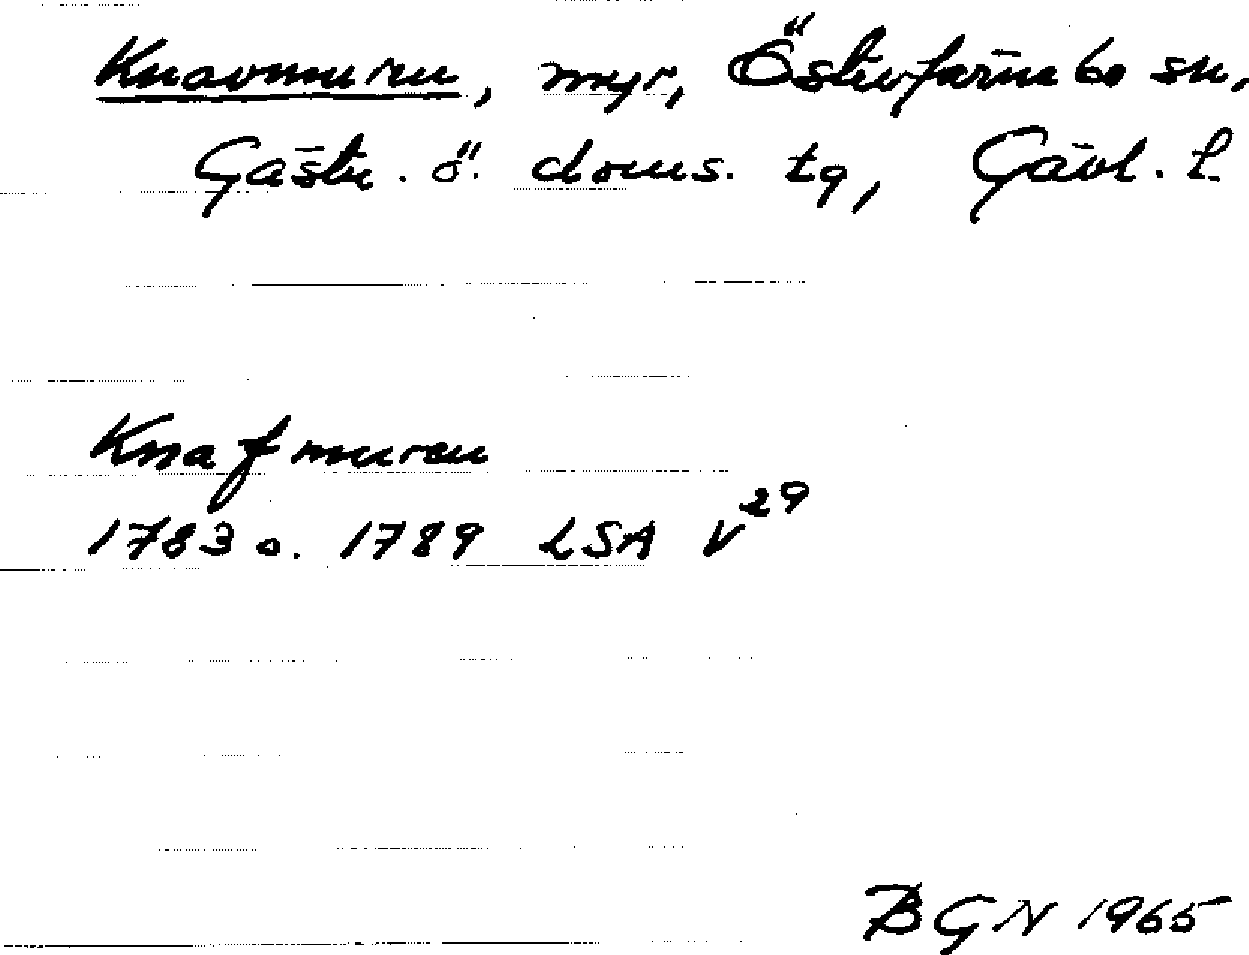 Knavmuren, myr, Österfärnebo sn,
Gästr. ö. doms. tg, Gävl. l.
Knafmuren
1783 o. 1789 LSA V29
BGN 1965